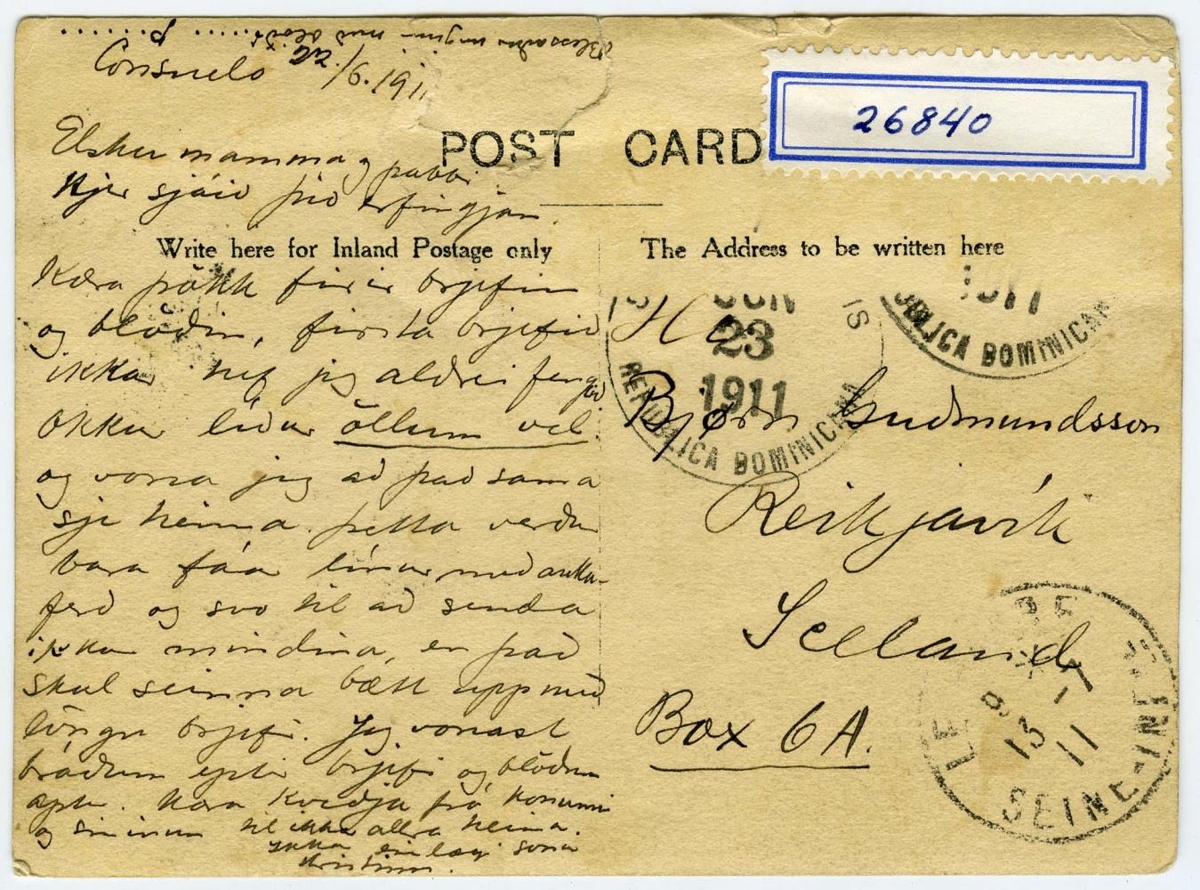 Blessaður unginn með
Consuelo 22/6. 1911
26840
POST CARD
Elsku mamma og pabbi
Hjer sjáið þið erfingjan.
Write here for Inland Postage only
The Address to be written here
Kæra þökk firir brjefin
og blöðin, firsta brjefið
ikkar hef jeg aldrei fengið
Okkur líður öllum vel.
og vona jeg að það sama
sje heima. þetta verður
bara fáa línur með auka-
ferð og svo til að senda
ikkur mindina, en það
skal seinna bætt upp með
löngu brjefi. Jeg vonast
bráðum eptir brjefi og blöðum
aptur. Kæra kveðju frá konunni
og sininum til ikkar allra heima.
ykkar einlægi sonur
Kristinn.
JUN
23
1911
REPUBLICA DOMINICANA
1911
PUBLICA DOMINICAN
Hr
Bjørn Gudmundsson
Reikjavík
Iceland
Box 6A.
LE HAVRE
13 - 7
11
SEINE-INF